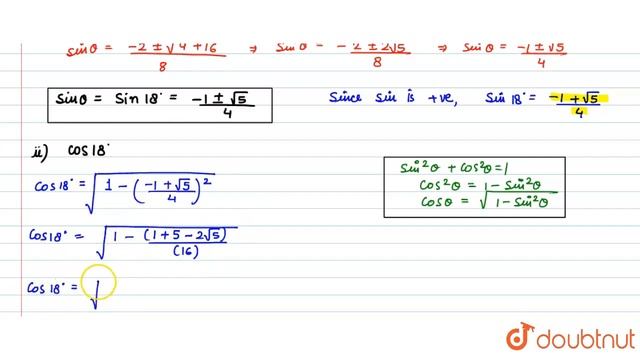 sinθ = -2 ± √4+16 / 8 ⇒ sinθ = -2 ± 2√5 / 8 ⇒ sinθ = -1 ± √5 / 4
sinθ = sin 18° = -1 ± √5 / 4
Since sin is +ve, sin 18° = -1 + √5 / 4
ii) cos 18°
sin²θ + cos²θ = 1
cos²θ = 1 - sin²θ
cosθ = √1 - sin²θ
cos 18° = √1 - (-1 + √5 / 4)²
cos 18° = √1 - (1 + 5 - 2√5) / (16)
cos 18° = √
doubtnut